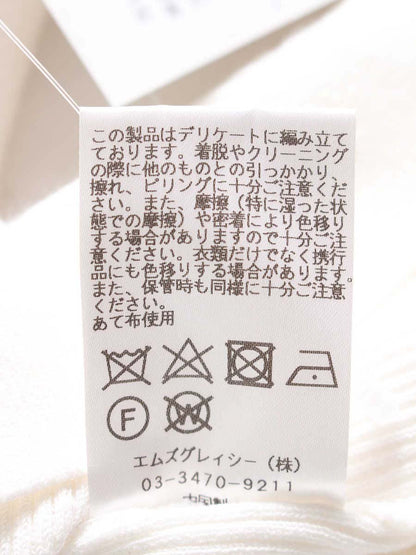 この製品はデリケートに編み立て
ております。着脱やクリーニング
の際に他のものとの引っかかり、
擦れ、ピリングに十分ご注意くだ
さい。また、摩擦（特に湿った状
態での摩擦）や密着により色移り
する場合がありますので十分ご注
意ください。衣類だけでなく携行
品にも色移りする場合があります。
また、保管時も同様に十分ご注意
ください。
あて布使用
F W
エムズグレイシー（株）
03-3470-9211
中国製